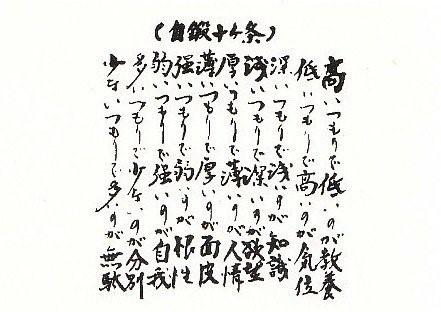 (自鍛十ケ条)
高いつもりで低いのが教養
低いつもりで高いのが気位
深いつもりで浅いのが知識
浅いつもりで深いのが欲望
厚いつもりで薄いのが人情
薄いつもりで厚いのが面皮
强いつもりで弱いのが根性
弱いつもりで强いのが自我
多いつもりで少ないのが分別
少ないつもりで多いのが無駄